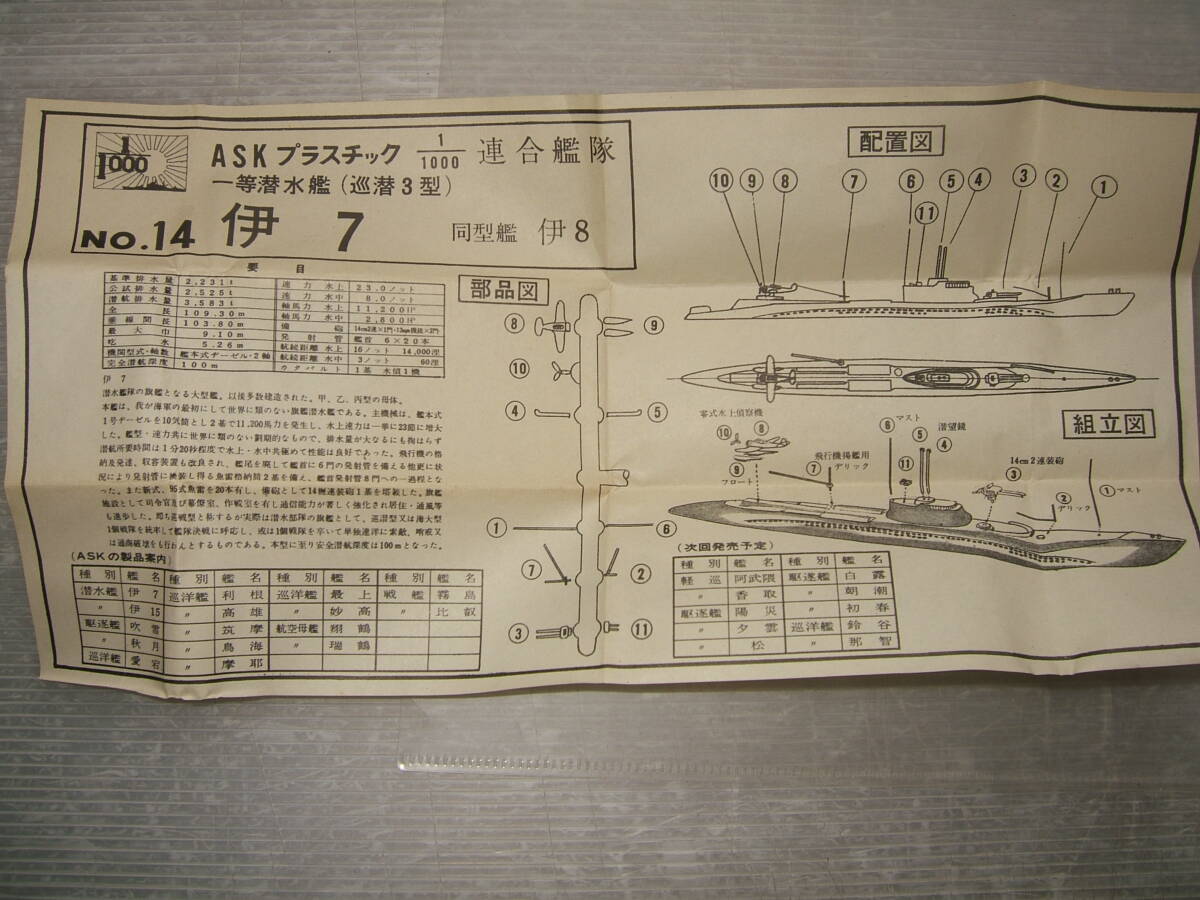 1/1000
ASK プラスチック 1/1000 連合艦隊
一等潜水艦(巡潜3型)
NO.14 伊 7 同型艦 伊8
要目
基準排水量 2,231t 速力 水上 23.0ノット
公試排水量 2,525t 速力 水中 8.0ノット
潜航排水量 3,583t 軸馬力 水上 11,200HP
全長 109.30m 軸馬力 水中 2,800HP
垂線間長 103.80m 備砲 14cm2連×1門・13mm機銃×2門
最大巾 9.10m 発射管 艦首 6×20本
吃水 5.26m 航続距離 水上 16ノット 14,000浬
機関型式・軸数 艦本式ヂーゼル・2軸 航続距離 水中 3ノット 60浬
完全潜航深度 100m カタパルト 1基 水偵1機
伊 7
潜水艦隊の旗艦となる大型艦。以後多数建造された。甲、乙、丙型の母体。
本艦は、我が海軍の最初にして世界に類のない旗艦潜水艦である。主機械は、艦本式
1号ヂーゼルを10気筒とし2基で11,200馬力を発生し、水上速力は一挙に23節に増大
した。艦型・速力共に世界に類のない劃期的なもので、排水量が大なるにも拘はらず
潜航所要時間は1分20秒程度で水上・水中共極めて性能は良好であった。飛行機の格
納及発達、収容装置も改良され、艦尾を廃して艦首に6門の発射管を備える他更に状
況により発射管に換装し得る魚雷格納筒2基を備え、艦首発射管8門への一過程とな
った。また新式、95式魚雷を20本有し、備砲として14糎連装砲1基を塔載した。旗艦
施設として司令官及び幕僚室、作戦室を有し通信能力が著しく強化され居住・通風等
も進歩した。即ち巡戦型と称するが実際は潜水部隊の旗艦として、巡潜型又は海大型
1個戦隊を統率して艦隊決戦に呼応し、或は1個戦隊を率いて単独遠洋に索敵、哨戒又
は通商破壊をも行おんとするものである。本型に至り安全潜航深度は100mとなった。
(ASKの製品案内)
種別 艦名 種別 艦名 種別 艦名 種別 艦名
潜水艦 伊7 巡洋艦 利根 巡洋艦 最上 戦艦 霧島
〃 伊15 〃 高雄 〃 妙高 〃 比叡
駆逐艦 吹雪 〃 筑摩 航空母艦 翔鶴
〃 秋月 〃 鳥海 〃 瑞鶴
巡洋艦 愛宕 〃 摩耶
部品図
⑧ ⑨
⑩
④ ⑤
① ⑥
⑦ ②
③ ⑪
配置図
⑩ ⑨ ⑧ ⑦ ⑥ ⑤ ④ ③ ② ①
⑪
組立図
零式水上偵察機
⑩ ⑧
⑨
フロート
飛行機揚艦用
⑦ デリック
⑥ マスト
潜望鏡
⑤
④
⑪
14cm2連装砲
③
②
デリック
①マスト
(次回発売予定)
軽巡 阿武隈 駆逐艦 白露
〃 香取 〃 朝潮
駆逐艦 陽炎 〃 初春
〃 夕雲 巡洋艦 鈴谷
〃 松 〃 那智